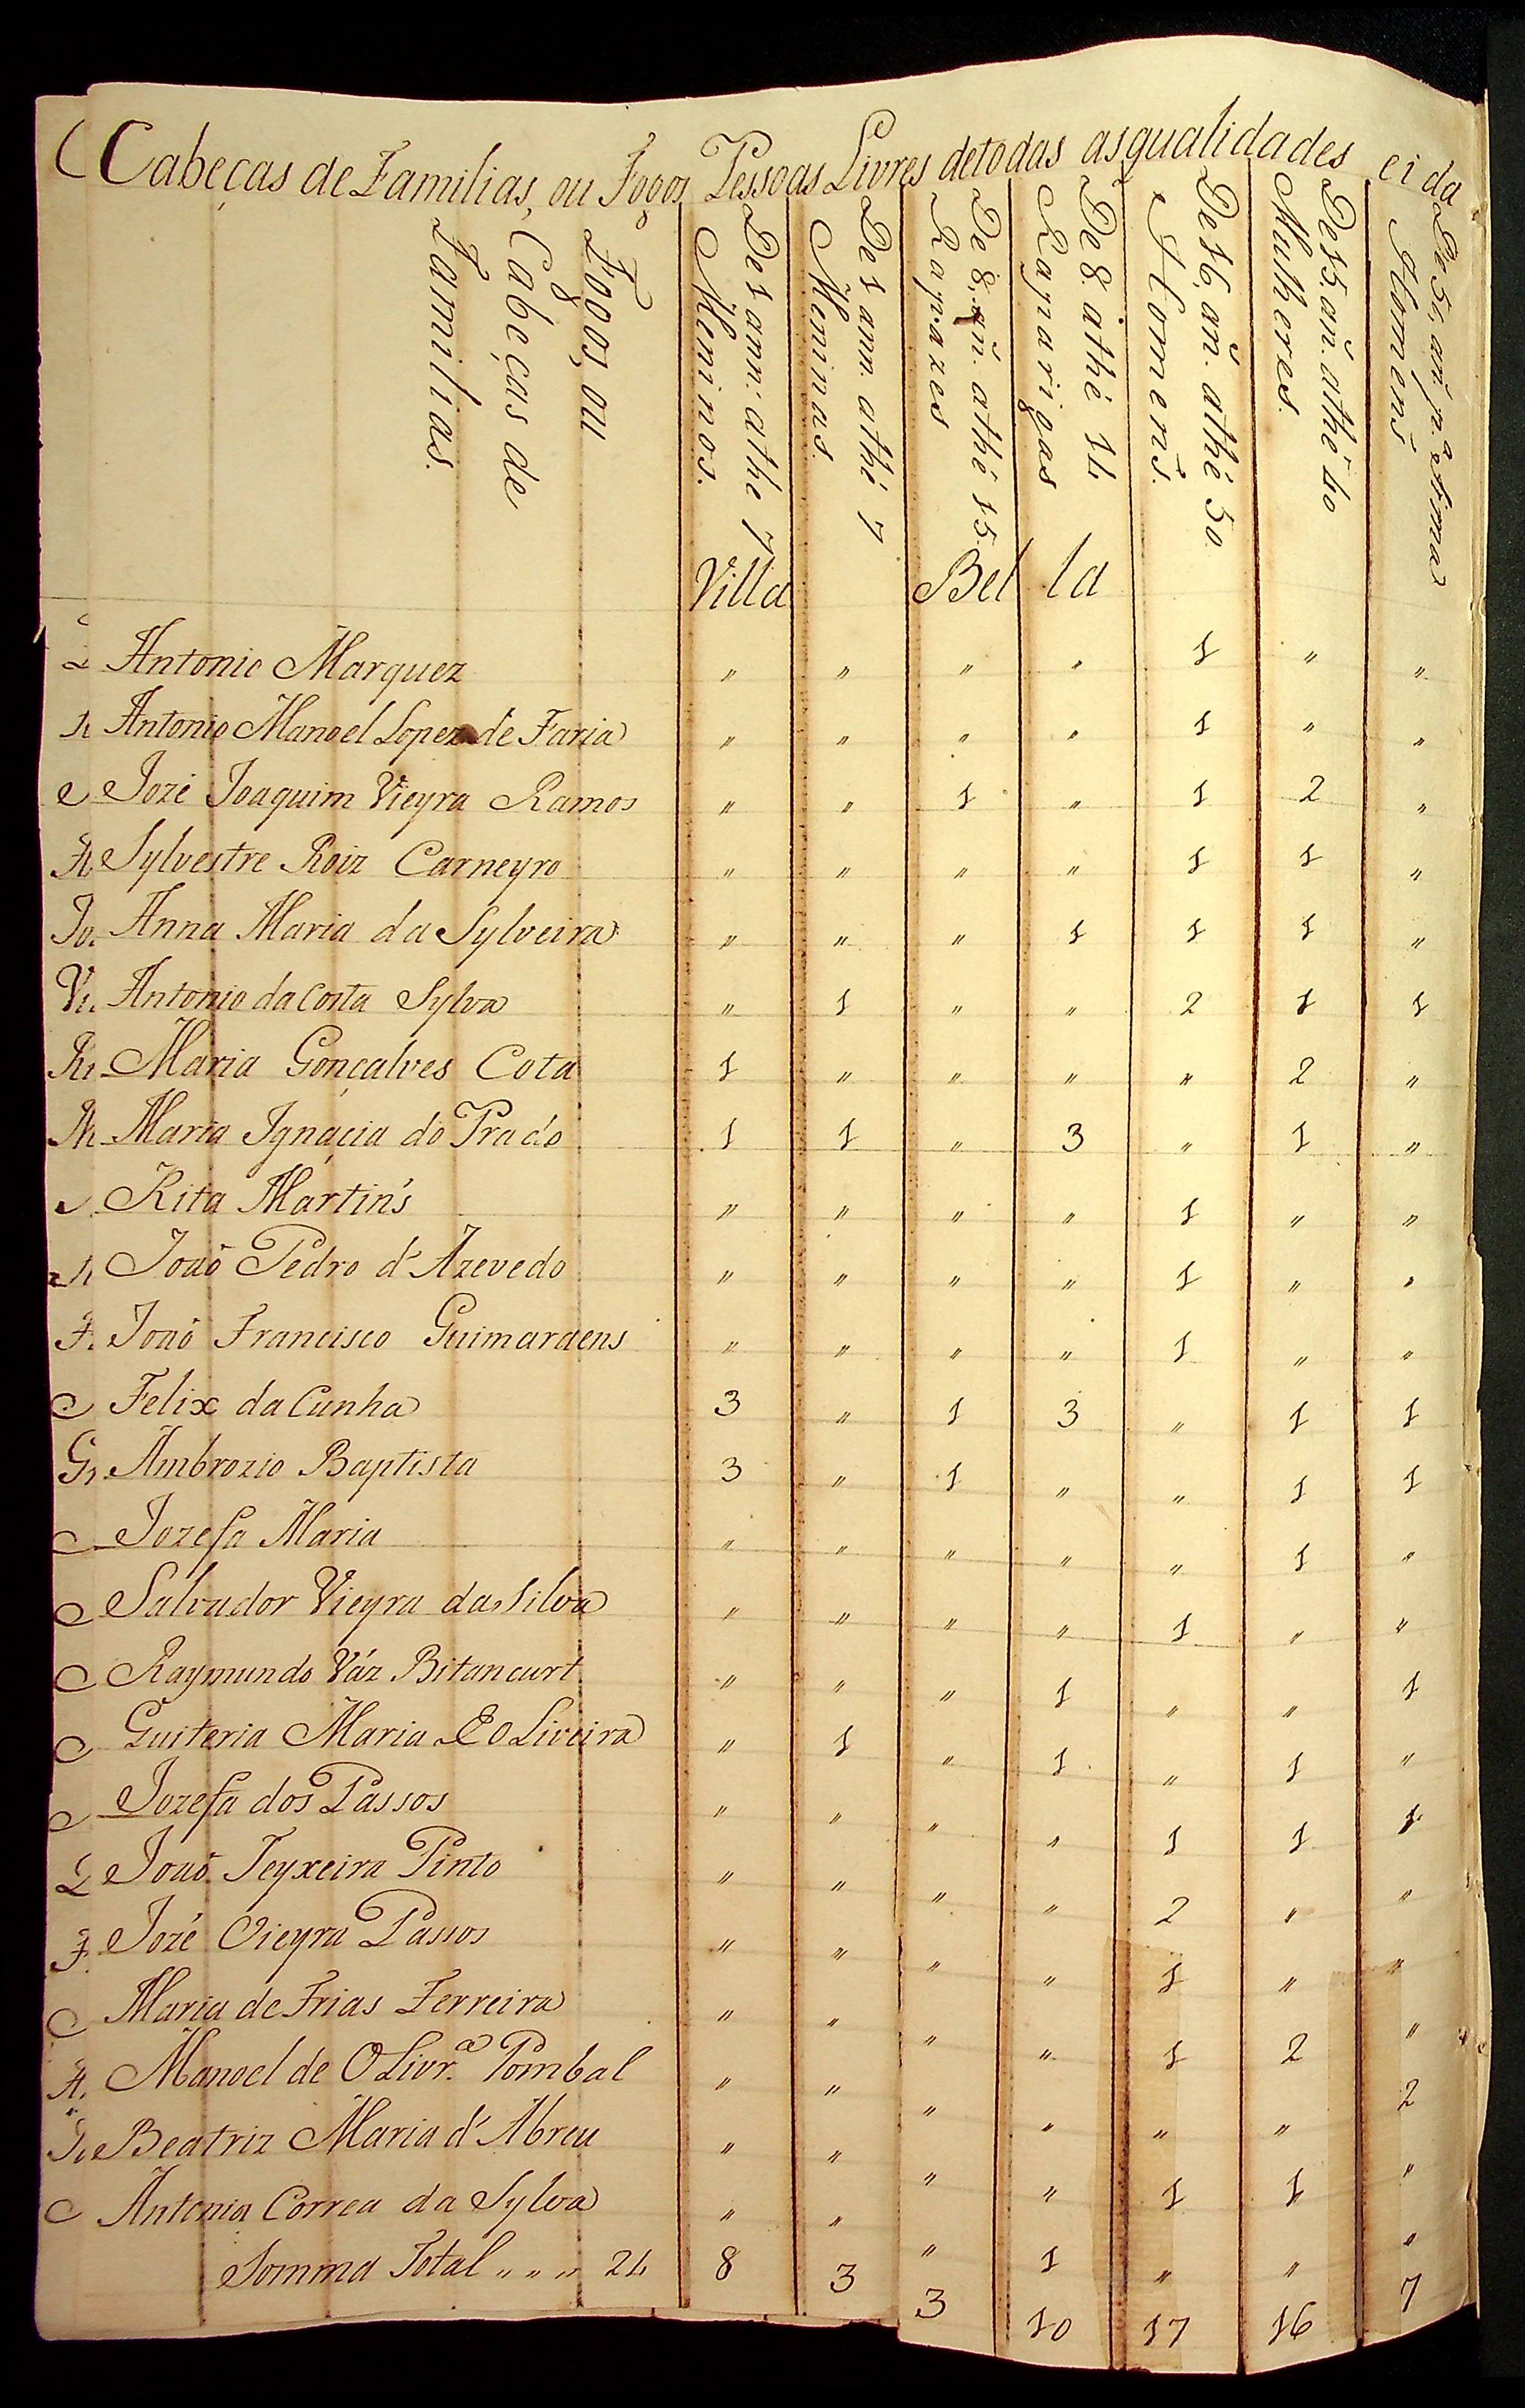 Cabeças de Familias, ou Fogos Pessoas Livres de todas as qualidades ei da
Fogos, ou
Cabeças de
Familias.
De 1 ann. athe 7
Meninos.
De 1 ann. athé 7
Meninas.
De 8. añ. athé 15.
Rapazes
De 8. athé 14
Raparigas
De 16. añ. athé 50
Homens.
De 15. añ. athé 40
Mulheres.
De 51. añ. p.ª sima
Homens
Villa Bella
Antonio Marquez " " " " 1 " "
Antonio Manoel Lopez de Faria " " " " 1 " "
Jozé Joaquim Vieyra Ramos " " 1 " 1 2 "
Sylvestre Roiz Carneyro " " " " 1 1 "
Anna Maria da Sylveira " " " 1 1 1 "
Antonio da Costa Sylva " 1 " " 2 1 1
Maria Gonçalves Cota 1 " " " " 2 "
Maria Ignaçia do Prado 1 1 " 3 " 1 "
Rita Martins " " " " 1 " "
João Pedro d'Azevedo " " " " 1 " "
João Francisco Guimaraens " " " " 1 " "
Felix da Cunha 3 " 1 3 " 1 1
Ambrozio Baptista 3 " 1 " " 1 1
Jozefa Maria " " " " " 1 "
Salvador Vieyra da Silva " " " " 1 " "
Raymundo Váz Bitancurt " " " 1 " " 1
Guiteria Maria E OLiveira " 1 " 1 " 1 "
Jozefa dos Passos " " " " 1 1 1
João Teyxeira Pinto " " " " 2 " "
Jozé Vieyra Passos " " " " 1 " "
Maria de Frias Ferreira " " " " 1 2 "
Manoel de OLivr.ª Pombal " " " " " " 2
Beatriz Maria d'Abreu " " " " 1 1 "
Antonia Correa da Sylva " " " 1 " " "
Somma Total " " " 24 8 3 3 10 17 16 7